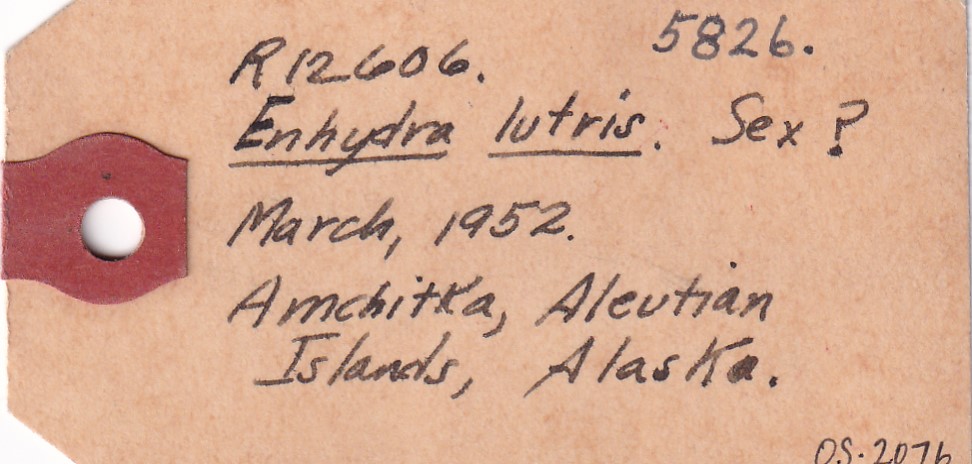 5826.
R12606.
Enhydra lutris. Sex?
March, 1952.
Amchitka, Aleutian
Islands, Alaska.
OS. 2076